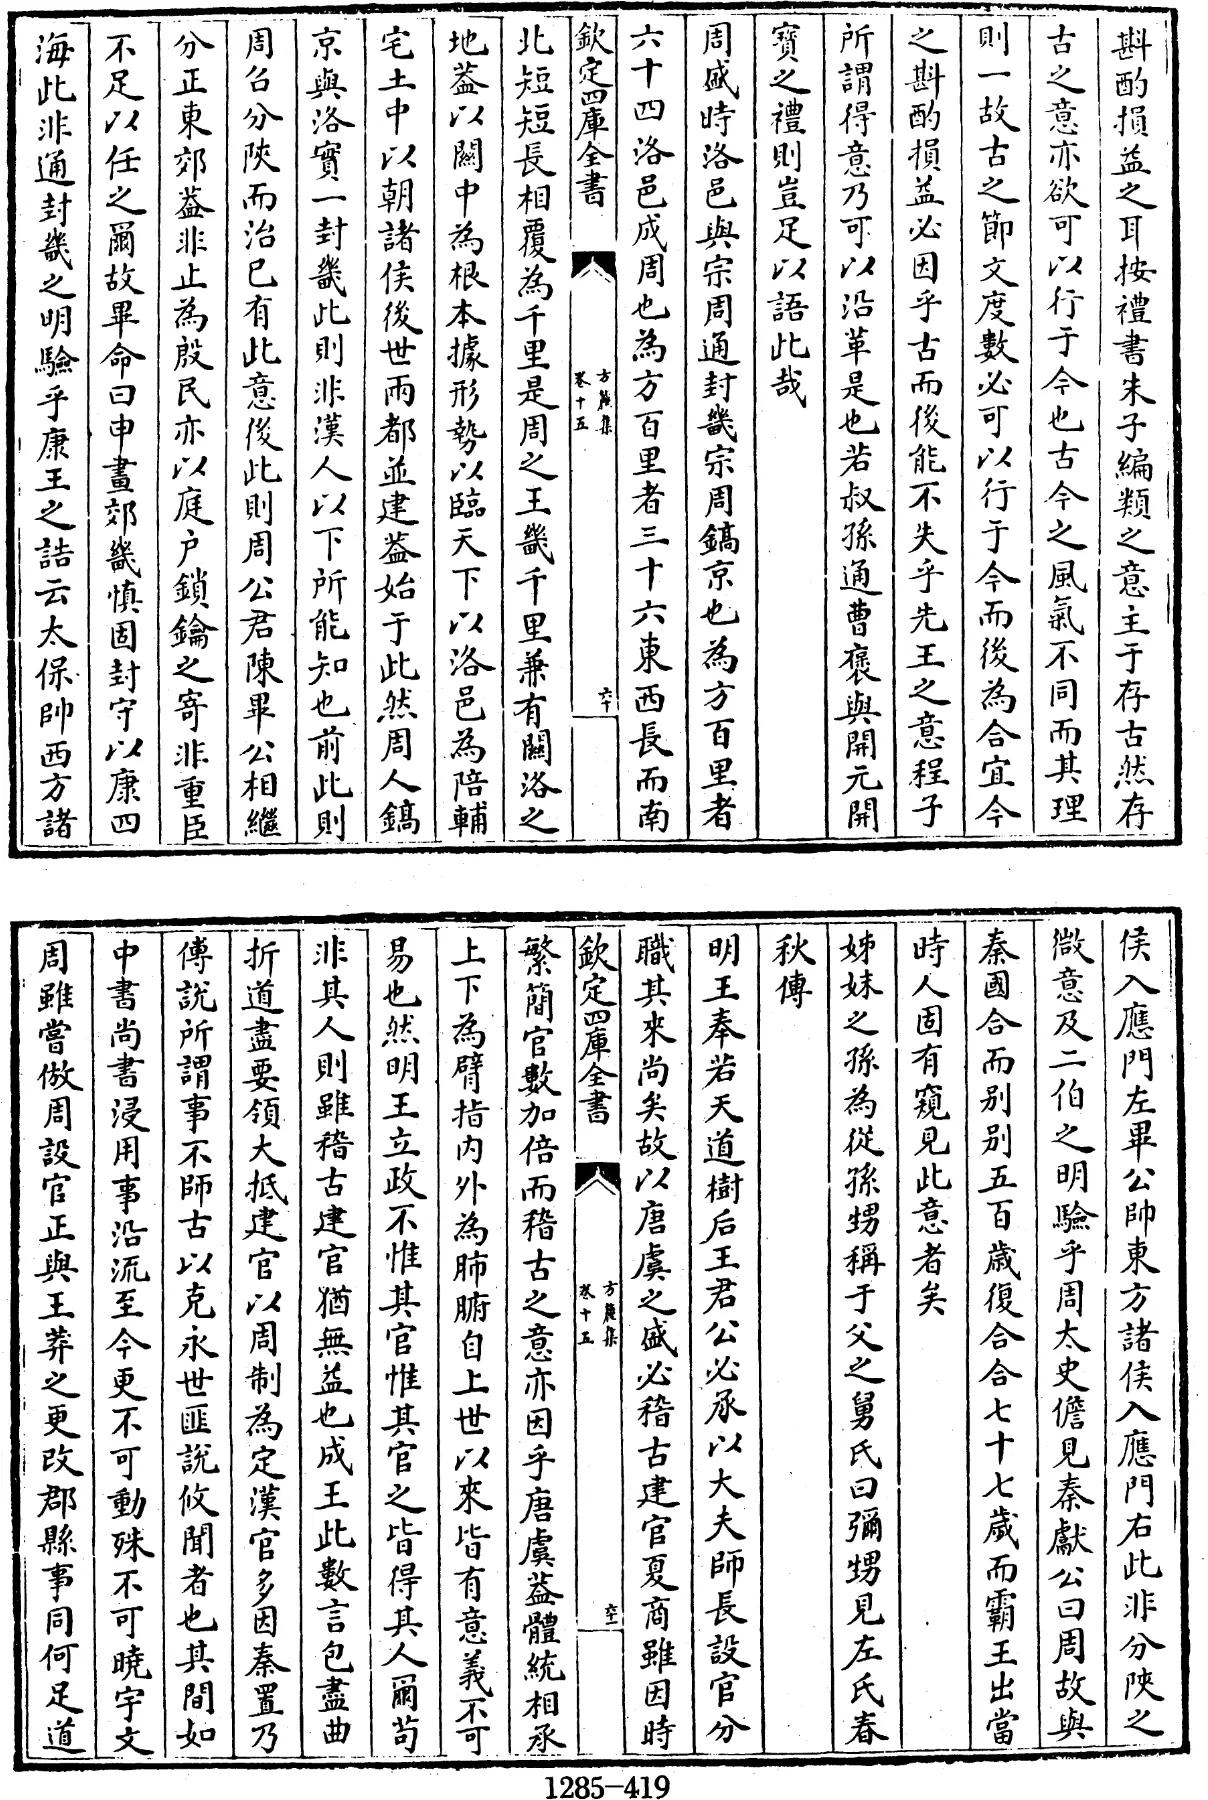 斟酌損益之耳按禮書朱子編類之意主于存古然存
古之意亦欲可以行于今也古今之風氣不同而其理
則一故古之節文度數必可以行于今而後為合宜今
之斟酌損益必因乎古而後能不失乎先王之意程子
所謂得意乃可以沿革是也若叔孫通曹褒與開元開
寶之禮則豈足以語此哉
周盛時洛邑與宗周通封畿宗周鎬京也為方百里者
六十四洛邑成周也為方百里者三十六東西長而南
欽定四庫全書
方麓集
卷十五
六十
北短短長相覆為千里是周之王畿千里兼有關洛之
地葢以關中為根本據形勢以臨天下以洛邑為陪輔
宅土中以朝諸侯後世兩都並建葢始于此然周人鎬
京與洛實一封畿此則非漢人以下所能知也前此則
周召分陜而治已有此意後此則周公君陳畢公相繼
分正東郊葢非止為殷民亦以庭户鎖鑰之寄非重臣
不足以任之爾故畢命曰申畫郊畿慎固封守以康四
海此非通封畿之明驗乎康王之誥云太保帥西方諸
侯入應門左畢公帥東方諸侯入應門右此非分陜之
微意及二伯之明驗乎周太史儋見秦獻公曰周故與
秦國合而别别五百歲復合合七十七歲而霸王出當
時人固有窺見此意者矣
姊妹之孫為從孫甥稱于父之舅氏曰彌甥見左氏春
秋傳
明王奉若天道樹后王君公必承以大夫師長設官分
職其來尚矣故以唐虞之盛必稽古建官夏商雖因時
欽定四庫全書
方麓集
卷十五
六十一
繁簡官數加倍而稽古之意亦因乎唐虞葢體統相承
上下為臂指内外為肺腑自上世以來皆有意義不可
易也然明王立政不惟其官惟其官之皆得其人爾苟
非其人則雖稽古建官猶無益也成王此數言包盡曲
折道盡要領大抵建官以周制為定漢官多因秦置乃
傅說所謂事不師古以克永世匪說攸聞者也其間如
中書尚書浸用事沿流至今更不可動殊不可曉宇文
周雖嘗倣周設官正與王莽之更改郡縣事同何足道
1285-419